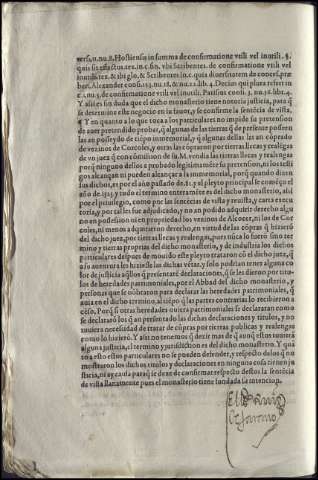 vers.n.nu.8. Hostiensis in summa de confirmatione vtili vel inutili. §.
quis sit effectus. tex. in c. fin. vbi Scribentes. de confirmatione vtili vel
inutili. tex. & ibi glo. & Scribentes in. c. quia diversitatem de conces. præ
ben. Alexander consi. 153. nu. 18. & nu. 21. lib. 4. Decius qui plura refert in
c. 1. nu. 3. de confirmatione vtili vel inutili. Paulus consi. 3. nu. 18. libr. 4.
Y assi es sin duda que el dicho monasterio tiene notoria justicia, para q̃
se determine este negocio en su fauor, y se confirme la sentẽcia de vista.
¶ Y en quanto a lo que toca a los particulares no impide su pretension
de auer pretendido probar, q̃ algunas de las tierras q̃ de presente posseen
las an posseydo de tiẽpo immemorial, y q̃ algunas dellas las an cõprado
de vezinos de Corcoles, y otras las cõpraron por tierras llecas y realẽgas
de vn juez q̃ con cõmission de su M. vendia las tierras llecas y realengas
porq̃ ninguno dellos a probado legitimamẽte su pretension, ni los testi-
gos alcançan ni pueden alcançar a la immemorial, porq̃ quando dizen
sus dichos, es por el año passado de 81. y el pleyto principal se començo el
año de 1515. y todo el termino enteramẽte es del dicho monasterio, assi
por el pleyto principal, como por las sentẽcias de vista y reuista, y carta execu
toria, y por tal fue adjudicado, y no an podido adquirir derecho algu
no en possession ni en propiedad los vezinos de Alcocer, ni los de Cor
coles, ni menos adquirieron derecho, en virtud de las cõpras q̃ hiziero
del dicho juez, por tierras llecas y realengas, pues nũca lo fuerõ sino ter
mino y tierras propias del dicho monasterio, y de industria los dichos
particulares despues de mouido este pleyto trataron cõ el dicho juez, q̃
a su auentura les hiziesse las dichas vẽtas, y solo podrian tener alguna co
lor de justicia aq̃llos q̃ presentarõ declaraciones, q̃ se les dieron por titu-
los de heredades patrimoniales, por el Abbad del dicho monasterio, y
personas que se nõbraron para declarar las heredades patrimoniales, q̃
auia en el dicho termino, al tiẽpo q̃ las partes contrarias lo recibieron a
cẽso. Porq̃ si otras heredades ouiera patrimoniales se declararan como
se declararõ los q̃ an presentado las dichas declaraciones y titulos, y no
vuiera necessidad de tratar de cõpras por tierras publicas y realengas
como lo hizierõ. Y assi no tenemos q̃ dezir mas de q̃ aunq̃ ellos tuuierã
alguna justicia, el termino y jurisdiction es del dicho monasterio. Y qua
to a esto estos particulares no se pueden defender, y respecto delos q̃ no
mostraron los dichos titulos y declaraciones en ninguna cosa tienen ju
sticia, ni ay cauda para q̃ se dexe de confirmar respecto destos la sentẽcia
de vista llanamente pues el monasterio tiene fundada su intencion.